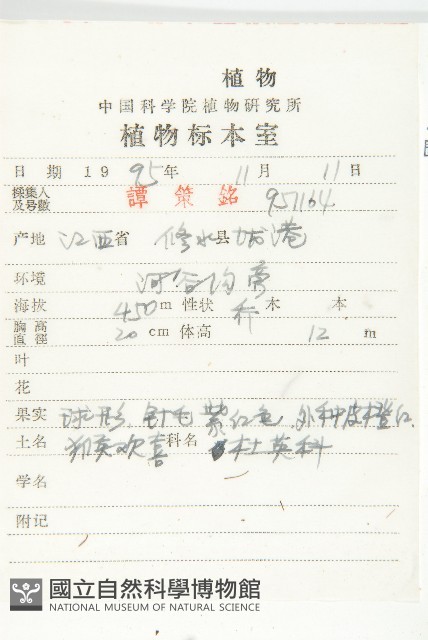 植物
中国科学院植物研究所
植物标本室
日期 1995年 11月 11日
採集人及号數 譚策銘 951104
产地 江西省 修水县 港
环境 河谷沟旁
海拔 450m 性状 乔木 本
胸高直徑 20cm 体高 12m
叶
花
果实 球形, 针毛紫红色, 外种皮橙红.
土名 猴欢喜 科名 杜英科
学名
附记
國立自然科學博物館
NATIONAL MUSEUM OF NATURAL SCIENCE